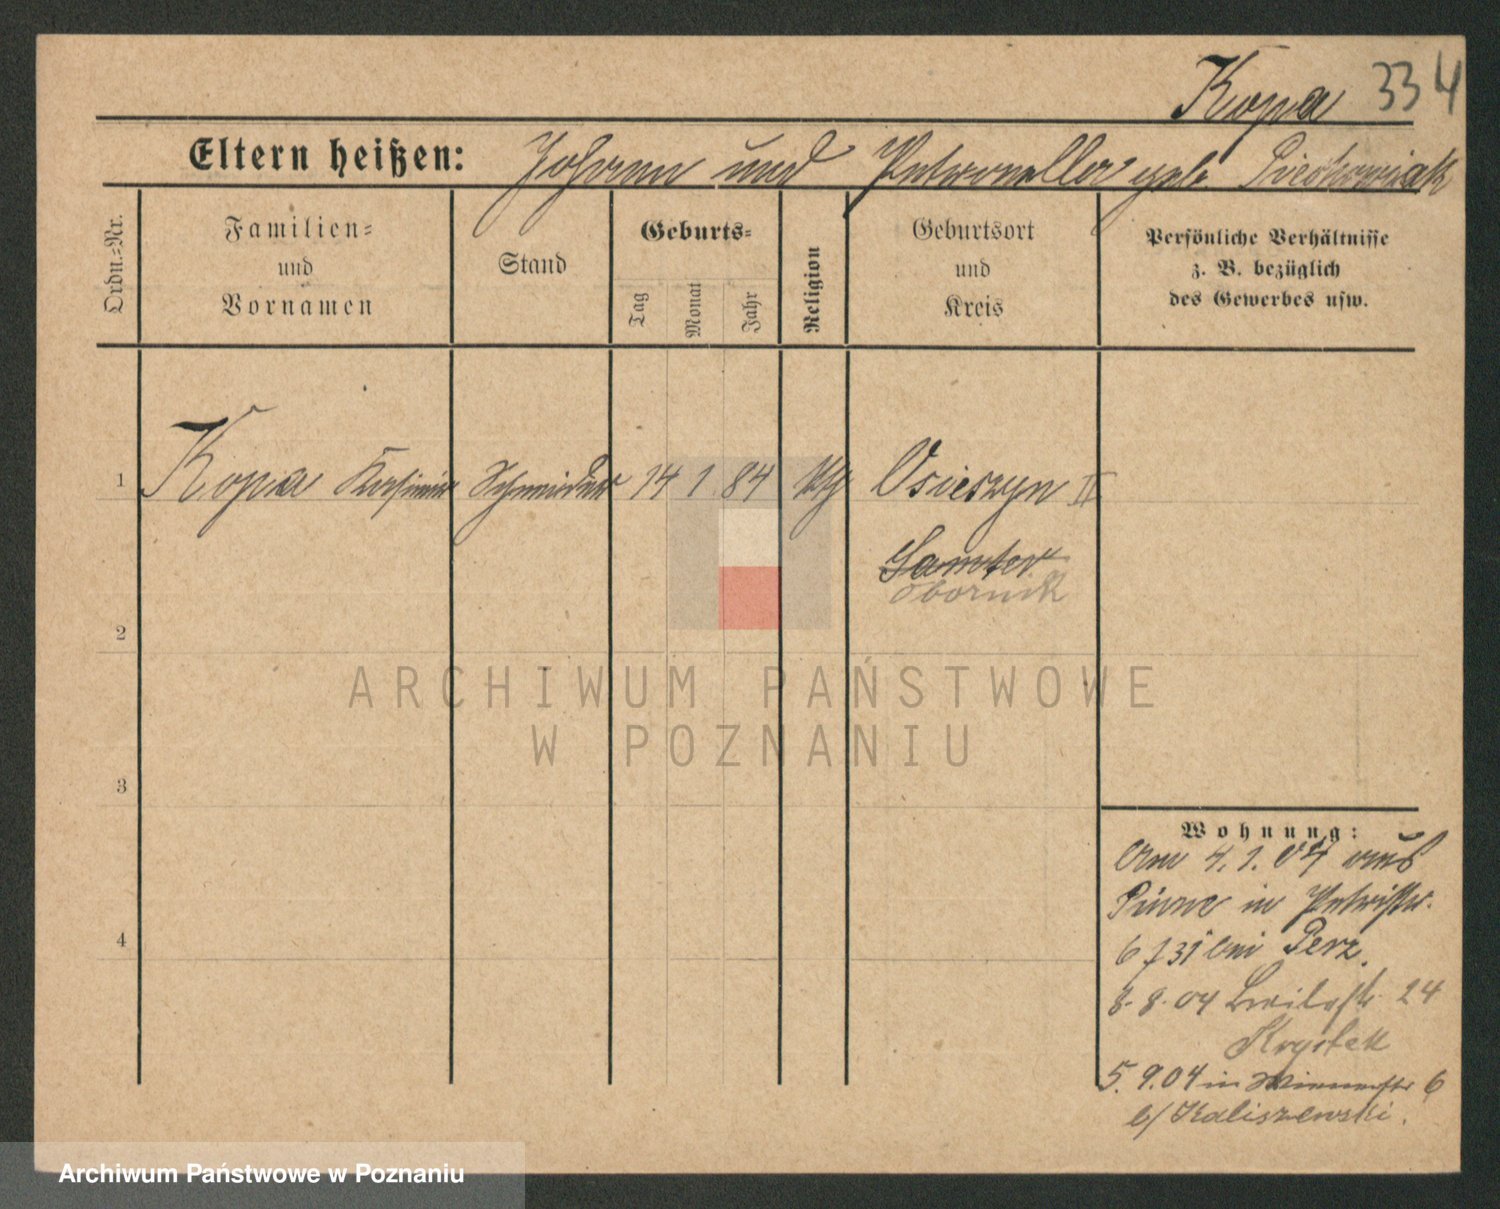 Kopa 334
Eltern heißen: Johann und Petronella geb. Pieskowiak
Ordn.=Nr.
Familien=
und
Vornamen
Stand
Geburts=
Tag
Monat
Jahr
Religion
Geburtsort
und
Kreis
Persönliche Verhältnisse
z. B. bezüglich
des Gewerbes usw.
1 Kopa Kasimir Schneider 14 1 84 kth Osieszyn II
Samter
Obornik
2
3
4
Wohnung:
Am 4.1.04 aus
Pinne in Petristr.
6 bei Perz.
8.8.04 24
Krystek
5.9.04 in Wienerstr 6
b/ Kaliszewski.
ARCHIWUM PAŃSTWOWE
W POZNANIU
Archiwum Państwowe w Poznaniu